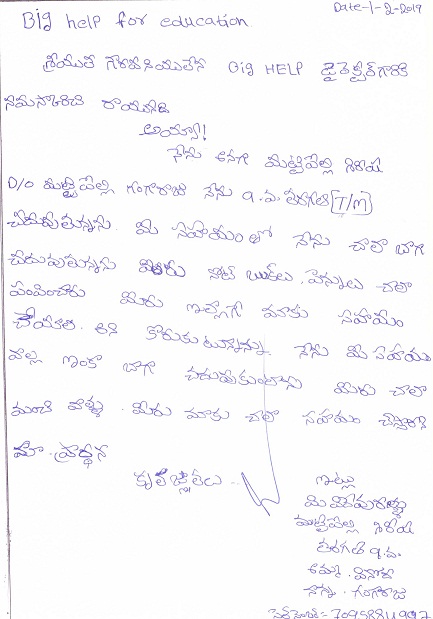 Date-1-2-2019
Big help for education
శ్రీయుత గౌరవనియులైన Big HELP డైరెక్టర్ గారికి
నమస్కరించి రాయునది
అయ్యా!
నేను అనగా మట్టిపల్లి శిరీష
D/o మట్టిపల్లి గంగారాజు నేను 9.వ. తరగతి [T/M]
చదువుతున్నాను. మీ సహాయం తో నేను చాలా బాగ
చదువుతున్నాను మీరు నోట్ బుక్‌లు, పెన్నులు చాలా
పంపించారు మీరు ఇల్లాగే మాకు సహాయం
చేయాలి. అని కోరుకుటున్నాను. నేను మీ సహాయం
వల్ల ఇంకా బాగా చదువుకుంటాను మీరు చాలా
మంచి వాళ్ళు. మీరు మాకు చాలా సహయం చేస్తారని
మా. ప్రార్థన
కృతజ్ఞతలు..
ఇట్లు
మీ
మట్టిపల్లి శిరీష
తరగతి 9.వ.
అమ్మ.
నాన్న. గంగరాజు